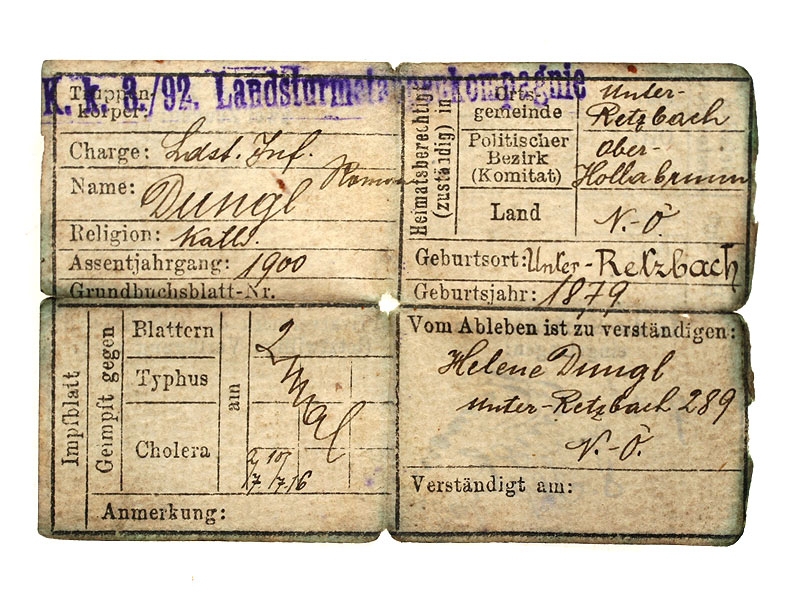 K. k. 3./92. Landsturmetappenkompagnie
Truppen-
körper:
Charge: Ldst. Inf.
Name: Dungl Roman
Religion: Kath.
Assentjahrgang: 1900
Grundbuchsblatt-Nr.
Heimatsberechtigt
(zuständig) in
Orts-
gemeinde
Unter-
Retzbach
Politischer
Bezirk
(Komitat)
Ober-
Hollabrunn
Land N.-Ö.
Geburtsort: Unter-Retzbach
Geburtsjahr: 1879
Impfblatt
Geimpft gegen
Blattern
Typhus
Cholera
am
2 mal
17. 7. 16
Anmerkung:
Vom Ableben ist zu verständigen:
Helene Dungl
Unter-Retzbach 289
N.-Ö.
Verständigt am: